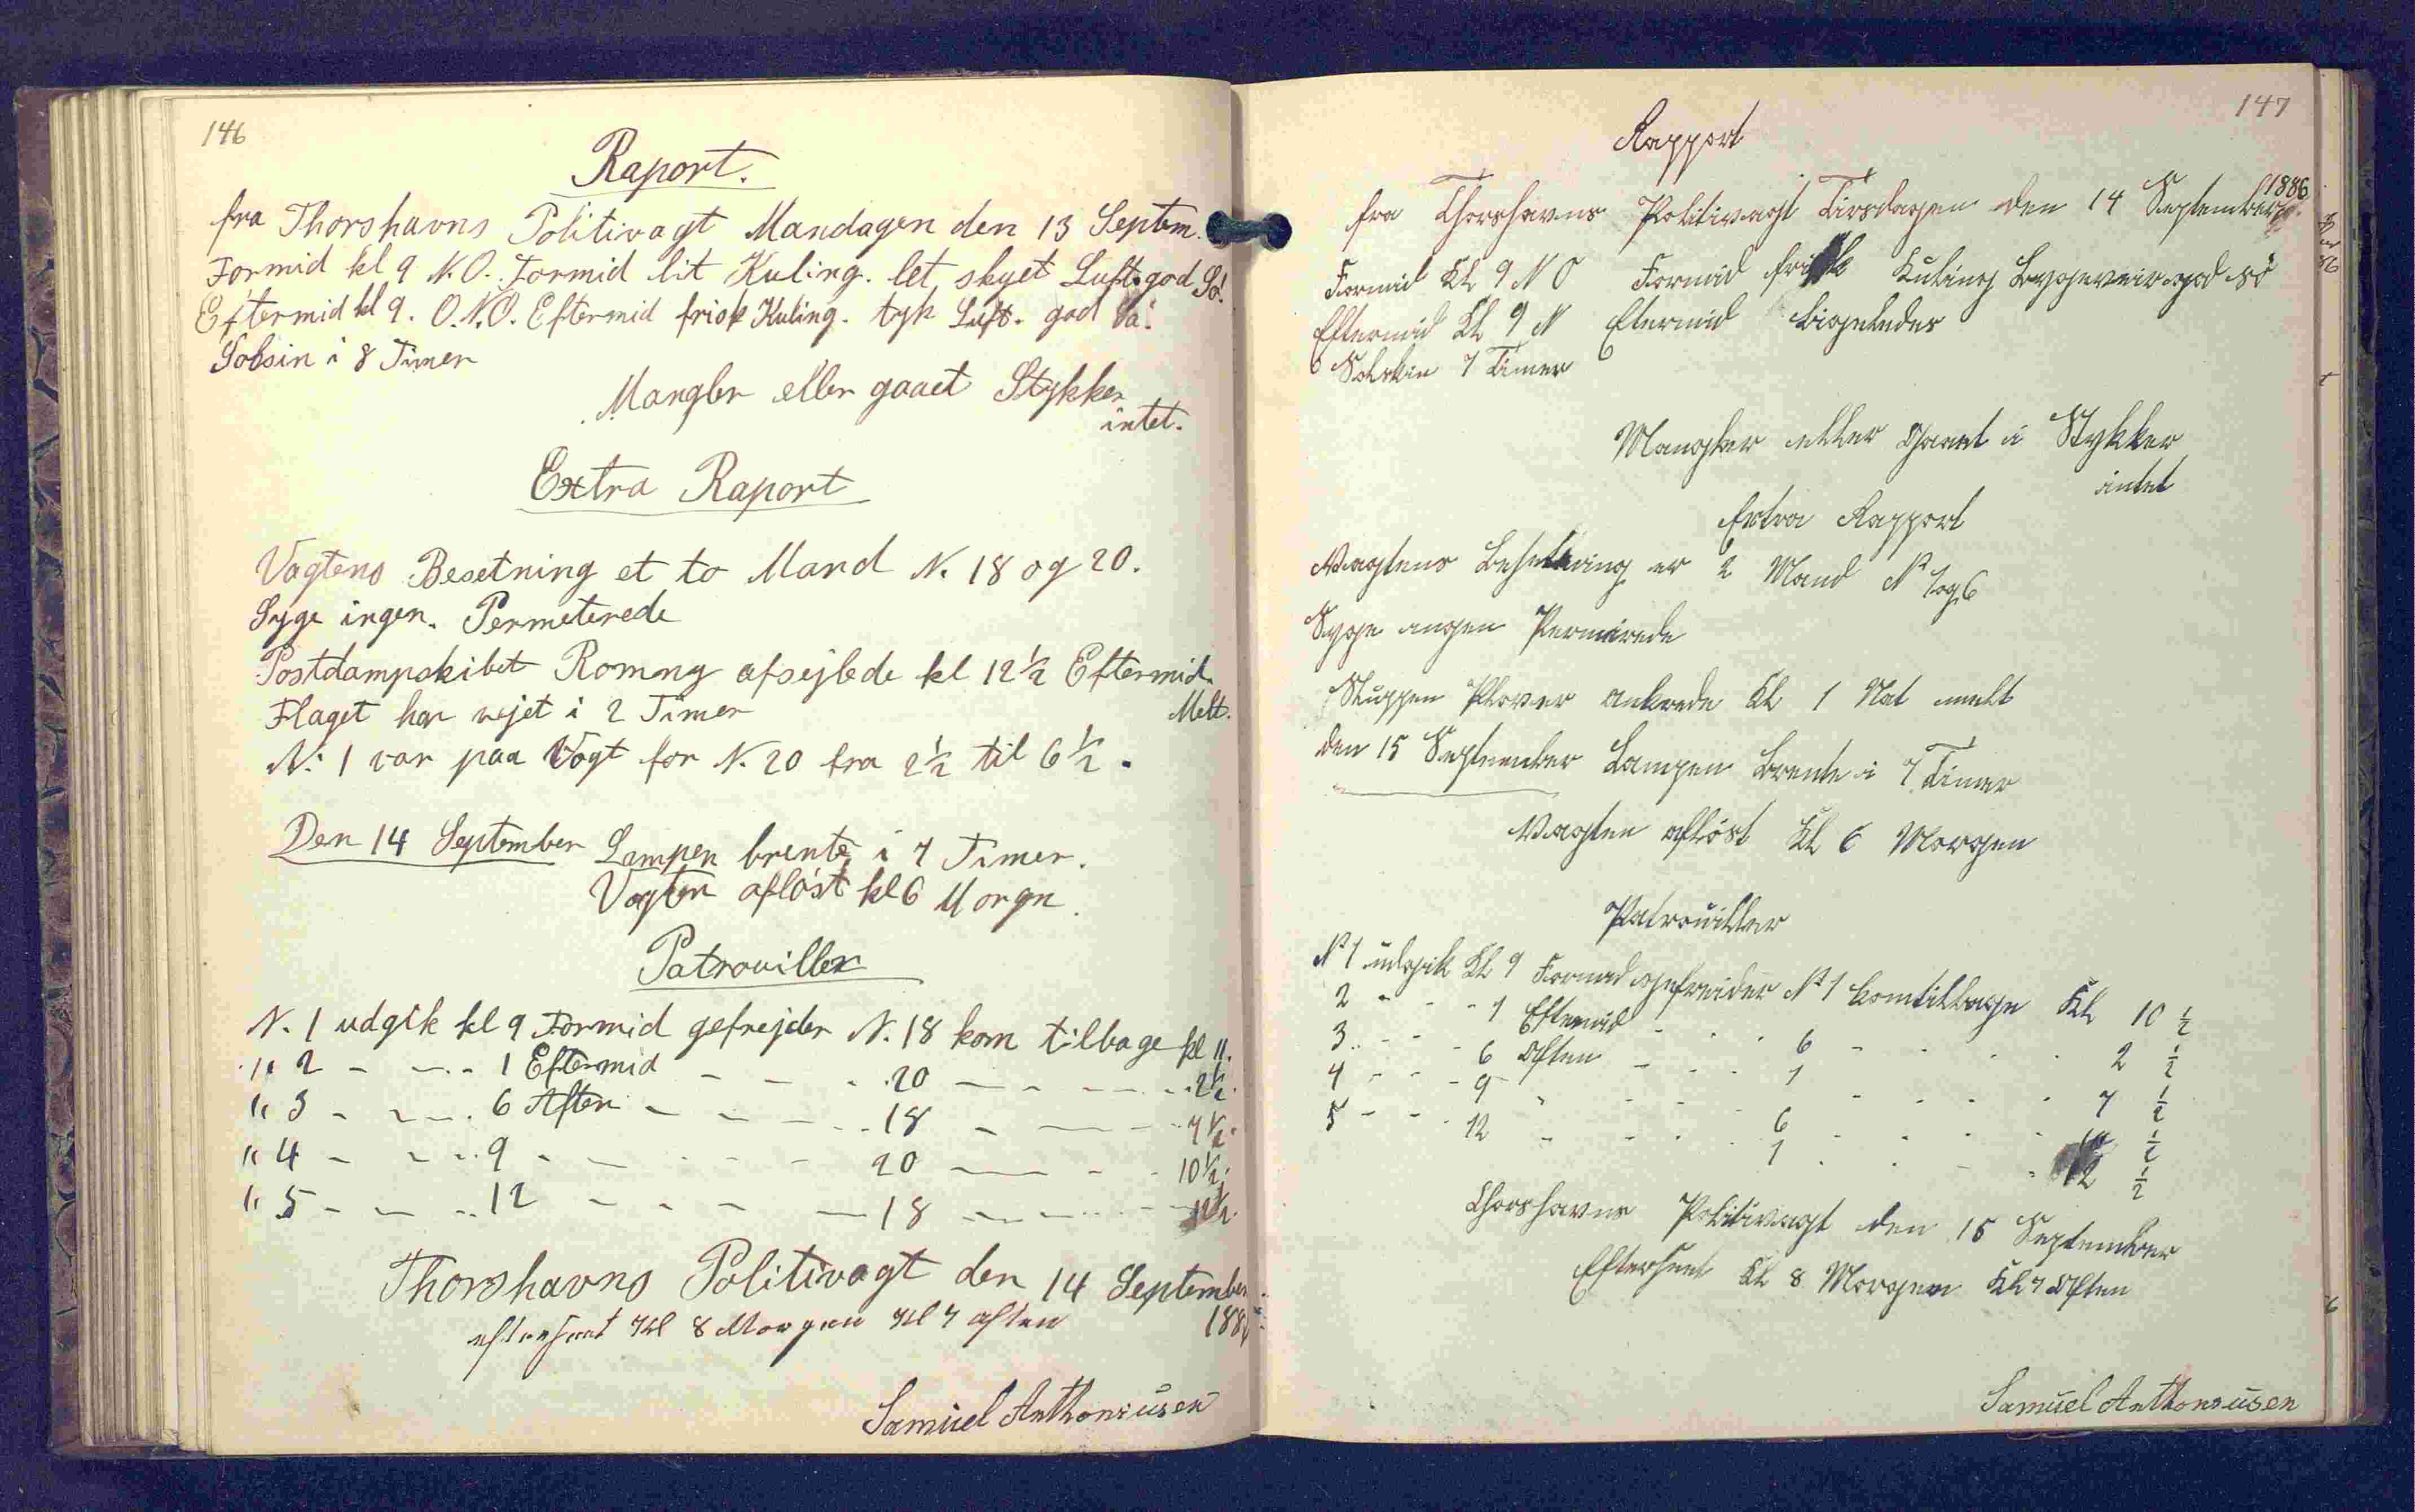 146
Raport.
fra Thorshavns Politivagt Mandagen den 13 Septem.
Formid kl 9 N.O. Formid lit Kuling. let skyet Luft. god Sö.
Eftermid kl 9. O.N.O. Eftermid frisk Kuling. tyk Luft. god Sö.
Solsin i 8 Timer
Mangler eller gaaet Stykker
intet.
Extra Raport
Vagtens Besetning et to Mand N. 18 og 20.
Syge ingen. Permeterede
Postdampskibet Romny afsejlede kl 12 1/2 Eftermid.
Flaget har vejet i 2 Timer
Melt.
N. 1 var paa Vagt for N. 20 fra 2 1/2 til 6 1/2.
Den 14 September Lampen brente i 7 Timer.
Vagten afløst kl 6 Morgn.
Patrouiller
N. 1 udgik kl 9 Formid gefrejder N. 18 kom tilbage kl 11.
" 2 - - - 1 Eftermid - - - 20 - - - 2 1/2.
" 3 - - - 6 Aften - - - 18 - - - 7 1/2.
" 4 - - - 9 - - - 20 - - - 10 1/2.
" 5 - - - 12 - - - 18 - - - 12 1/2.
Thorshavns Politivagt den 14 September
efterseet Kl 8 Morgen Kl 7 aften
188
Samuel Anthoniusen
147
Rapport
fra Thorshavns Politivagt Tirsdagen den 14 September 1886
Formid Kl 9 N O Formid frisk Kuling Bygeveir god sö
Eftermid Kl 9 N Etermid ligeledes
Solskin 7 Timer
Mangler eller Gaaet i Stykker
intet
Extra Rapport
Vagtens Besetning er 2 Mand No 1 og 6
Syge ingen Permirede
Sluppen Plover ankrede Kl 1 Nat melt
den 15 September Lampen brente i 7 Timer
Vagten afløst Kl 6 Morgen
Patrouiller
No 1 udgik Kl 9 Formid gefreider No 1 kom tilbage Kl 10 1/2
2 - - - 1 Eftermid - - - 6 - - - 2 1/2
3 - - - 6 Aften - - - 1 - - - 7 1/2
4 - - - 9 " - - - 6 - - - 10 1/2
5 - - - 12 - - - 1 - - - 12 1/2
Thorshavns Politivagt den 15 September
Efterseet Kl 8 Morgen Kl 7 Aften
Samuel Anthoniusen